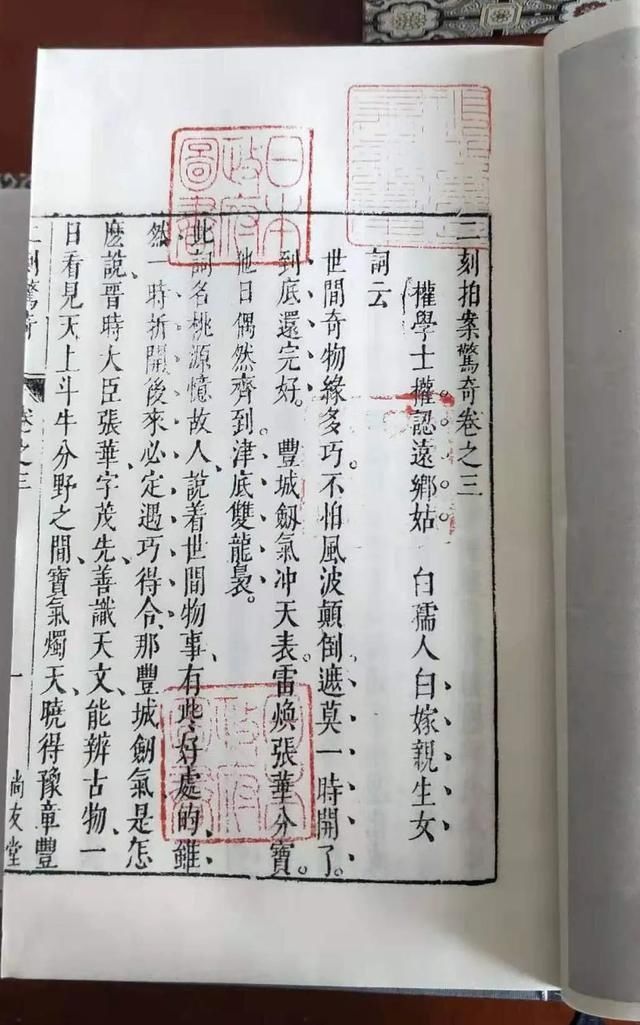 二刻拍案驚奇卷之三
權學士權認遠鄉姑　白孺人白嫁親生女
詞云
世間奇物緣多巧。不怕風波顛倒。遮莫一時開了。
到底還完好。　豐城劔氣冲天表。雷煥張華分寶。
他日偶然齊到。津底雙龍裊。
此詞名桃源憶故人、說着世間物事、有些好處的、雖
然一時折開、後來必定遇巧得合、那豐城劔氣是怎
麽說、晉時大臣張華字茂先、善識天文、能辨古物、一
日看見天上斗牛分野之間、寶氣燭天、曉得豫章豐
二刻驚奇　卷之三　一　尚友堂
日本
政府
圖書